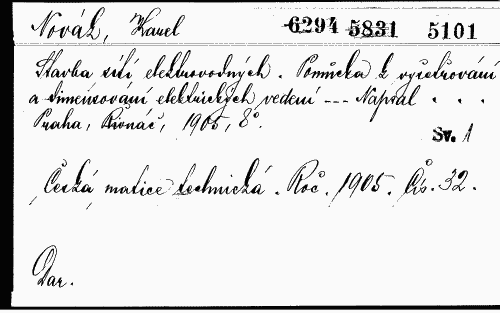 Novák, Karel 6294 5831 5101
Stavba sítí elektrovodných. Pomůcka k vyšetřování
a dimensování elektrických vedení --- Napsal . . .
Praha, Rivnáč, 1905, 8°.
Sv. 1
Česká matice technická. Roč. 1905. Čís. 32.
Dar.